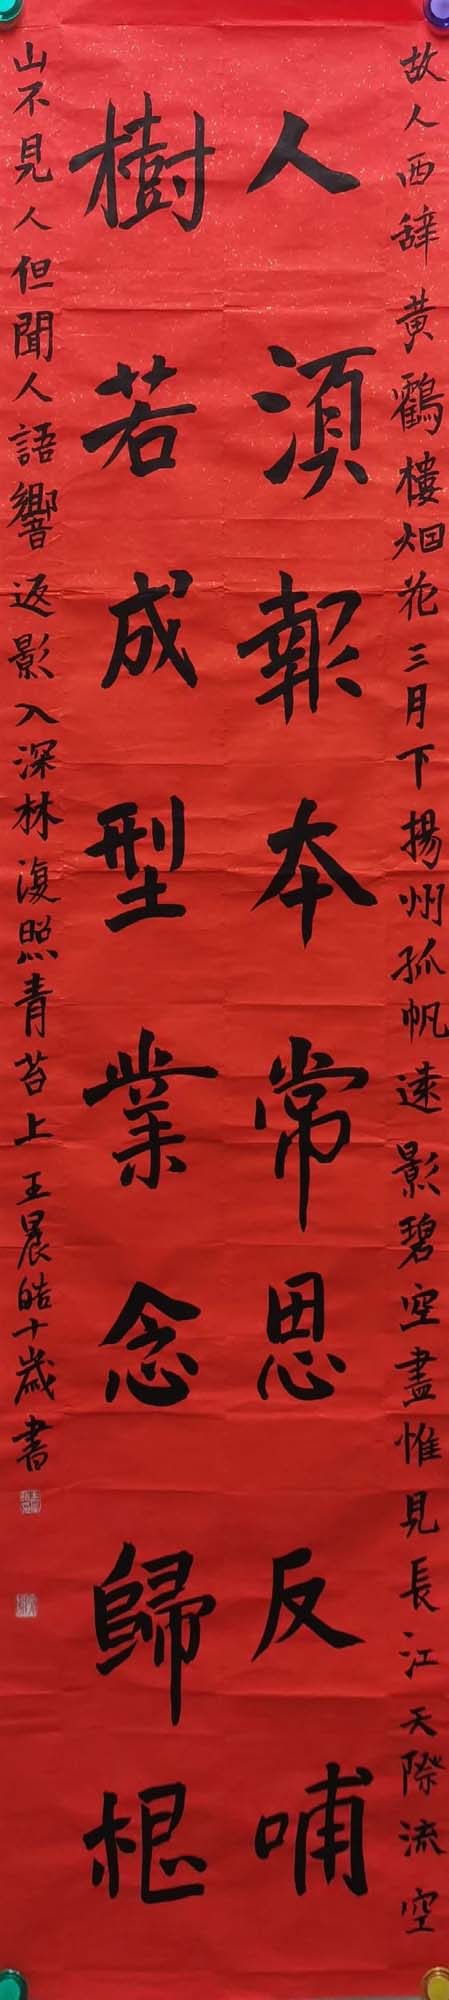 故人西辞黄鶴樓烟花三月下揚州孤帆遠影碧空盡惟見長江天際流空
人須報本常思反哺
樹若成型業念歸根
山不見人但聞人語響返影入深林復照青苔上王晨皓十歲書